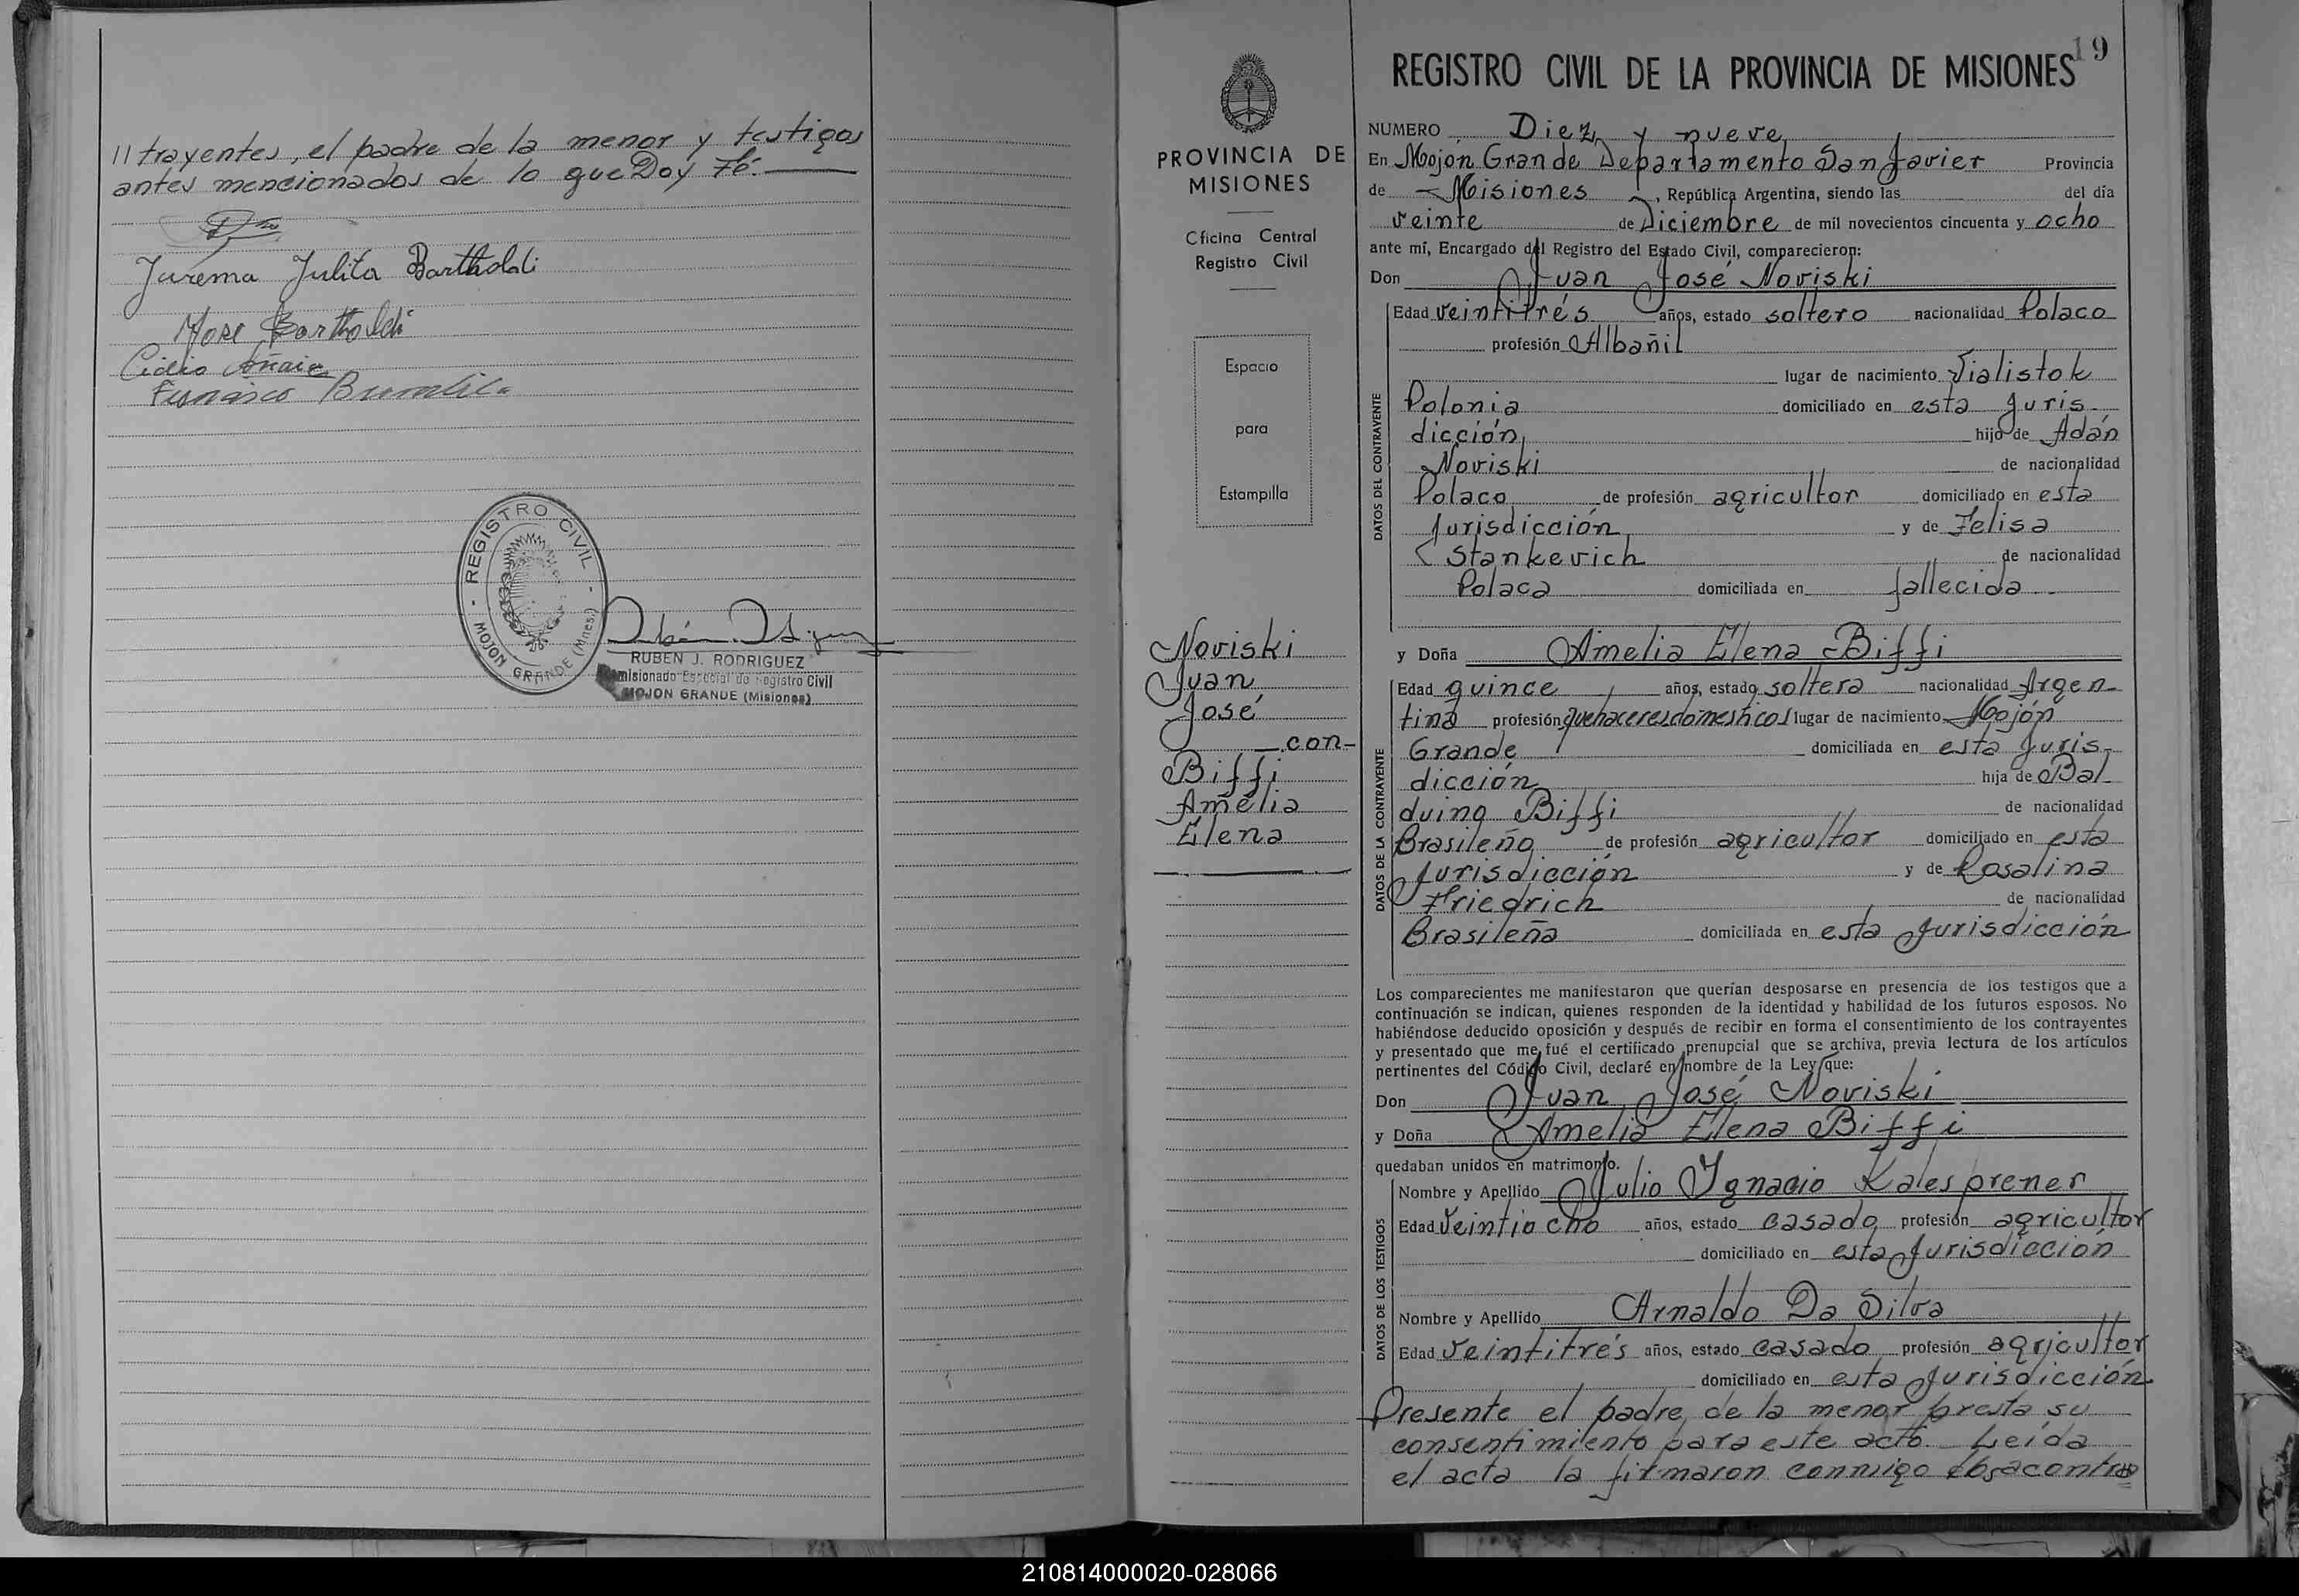 //trayentes, el padre de la menor y testigos
antes mencionados de lo que Doy Fé.
Jurema Julita Bartholdi
José Bartholdi
Cidio
REGISTRO CIVIL
MOJON GRANDE (Mnes.)
RUBEN J. RODRIGUEZ
Comisionado Especial de Registro Civil
MOJON GRANDE (Misiones)
PROVINCIA DE
MISIONES
Oficina Central
Registro Civil
Espacio
para
Estampilla
Noviski
Juan
José
con
Biffi
Amélia
Elena
19
REGISTRO CIVIL DE LA PROVINCIA DE MISIONES
NUMERO Diez y nueve
En Mojón Grande Departamento San Javier Provincia
de Misiones, República Argentina, siendo las del día
veinte de Diciembre de mil novecientos cincuenta y ocho
ante mí, Encargado del Registro del Estado Civil, comparecieron:
Don Juan José Noviski
DATOS DEL CONTRAYENTE
Edad veintitrés años, estado soltero nacionalidad Polaco
profesión Albañil
lugar de nacimiento Vialistok
Polonia domiciliado en esta Juris-
dicción, hijo de Adán
Noviski de nacionalidad
Polaco de profesión agricultor domiciliado en esta
Jurisdicción y de Felisa
Stankevich de nacionalidad
Polaca domiciliada en fallecida
y Doña Amelia Elena Biffi
DATOS DE LA CONTRAYENTE
Edad quince años, estado soltera nacionalidad Argen-
tina profesión quehaceres domesticos lugar de nacimiento Mojón
Grande domiciliada en esta Juris-
dicción hija de Bal-
duino Biffi de nacionalidad
Brasileño de profesión agricultor domiciliado en esta
Jurisdicción y de Rosalina
Friedrich de nacionalidad
Brasileña domiciliada en esta Jurisdicción
Los comparecientes me manifestaron que querían desposarse en presencia de los testigos que a
continuación se indican, quienes responden de la identidad y habilidad de los futuros esposos. No
habiéndose deducido oposición y después de recibir en forma el consentimiento de los contrayentes
y presentado que me fué el certificado prenupcial que se archiva, previa lectura de los artículos
pertinentes del Código Civil, declaré en nombre de la Ley que:
Don Juan José Noviski
y Doña Amelia Elena Biffi
quedaban unidos en matrimonio.
DATOS DE LOS TESTIGOS
Nombre y Apellido Julio Ignacio Kalesprener
Edad Veintiocho años, estado casado profesión agricultor
domiciliado en esta Jurisdicción
Nombre y Apellido Arnaldo Da Silva
Edad Veintitrés años, estado casado profesión agricultor
domiciliado en esta Jurisdicción
Presente el padre de la menor presta su
consentimiento para este acto. Leída
el acta la firmaron conmigo
210814000020-028066